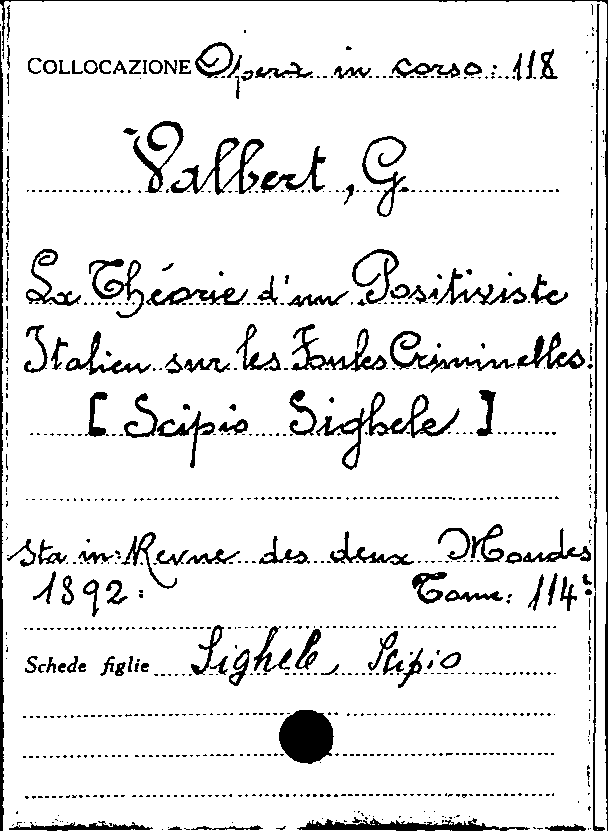 COLLOCAZIONE Opera in corso: 118
Valbert, G.
La Théorie d'un Positiviste
Italien sur les Foules Criminelles.
[Scipio Sighele]
Sta in: Revue des deux Mondes
1892: Tome: 114:
Schede figlie Sighele, Scipio